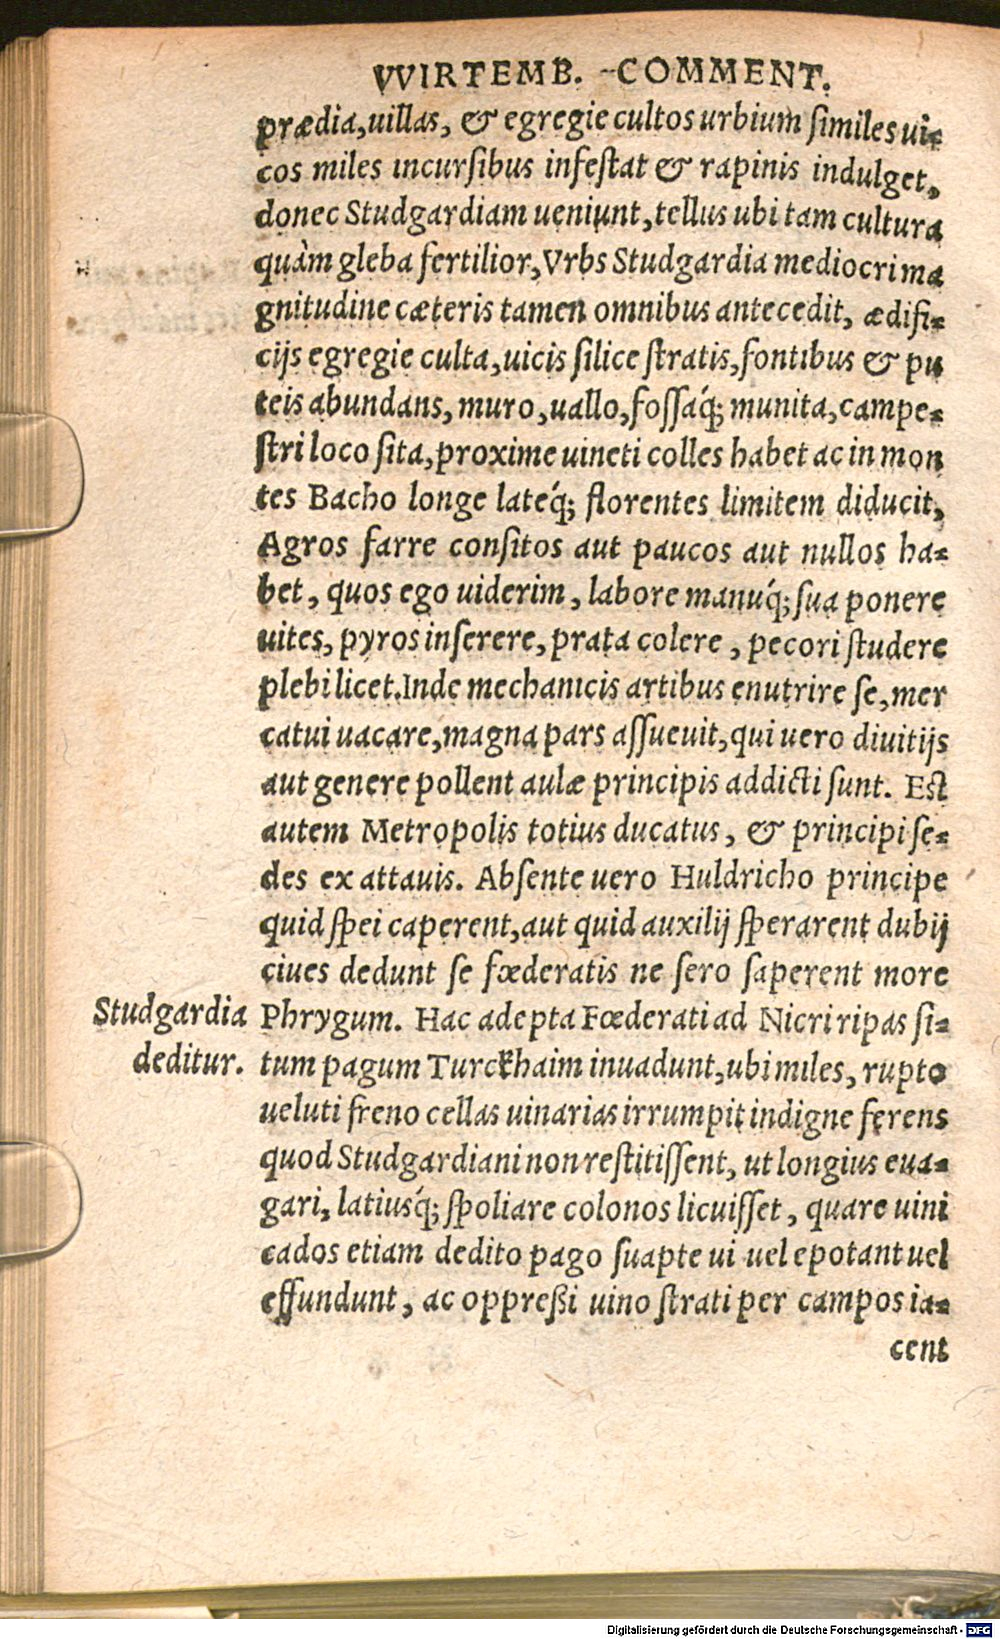 VVIRTEMB. COMMENT.
prædia,uillas, & egregie cultos urbium ſimiles ui-
cos miles incurſibus infeſtat & rapinis indulget,
donec Studgardiam ueniunt, tellus ubi tam cultura
quàm gleba fertilior, Vrbs Studgardia mediocri ma
gnitudine cæteris tamen omnibus antecedit, ædifi-
cijs egregie culta, uicis ſilice ſtratis, fontibus & pu
teis abundans, muro, uallo, foſſáq; munita, campe-
ſtri loco ſita, proxime uineti colles habet ac in mon
tes Bacho longe latéq; florentes limitem diducit,
Agros farre conſitos aut paucos aut nullos ha-
bet, quos ego uiderim, labore manúq; ſua ponere
uites, pyros inſerere, prata colere, pecori ſtudere
plebi licet. Inde mechanicis artibus enutrire ſe, mer
catui uacare, magna pars aſſueuit, qui uero diuitijs
aut genere pollent aulæ principis addicti ſunt. Eſt
autem Metropolis totius ducatus, & principi ſe-
des ex attauis. Abſente uero Huldricho principe
quid ſpei caperent, aut quid auxilij ſperarent dubij
ciues dedunt se fœderatis ne ſero ſaperent more
Studgardia deditur.
Phrygum. Hac adepta Fœderati ad Nicri ripas ſi-
tum pagum Turckhaim inuadunt, ubi miles, rupto
ueluti freno cellas uinarias irrumpit indigne ferens
quod Studgardiani non reſtitiſſent, ut longius eua-
gari, latiusq́; ſpoliare colonos licuiſſet, quare uini
cados etiam dedito pago ſuapte ui uel epotant uel
effundunt, ac oppreßi uino ſtrati per campos ia-
cent
Digitalisierung gefördert durch die Deutsche Forschungsgemeinschaft - DFG